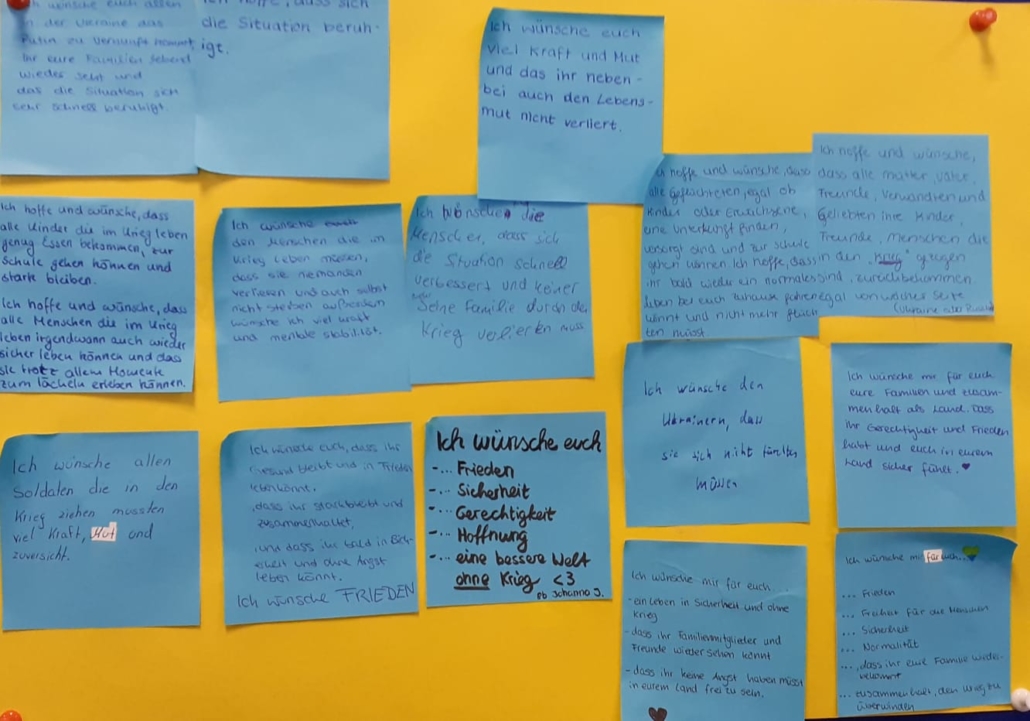 ich wünsche euch allen
in der Ukraine das
Putin zu Vernunft kommt,
ihr eure Familien lebend
wieder seht und
das die Situation sich
sehr schnell beruhigt.
Ich hoffe, dass sich
die Situation beruh-
igt.
Ich wünsche euch
viel Kraft und Mut
und das ihr neben-
bei auch den Lebens-
mut nicht verliert.
Ich hoffe und wünsche, dass
alle Geflüchteten, egal ob
Kinder oder Erwachsene,
eine Unterkunft finden,
versorgt sind und zur Schule
gehen können. Ich hoffe, dass
ihr bald wieder ein normales
Leben bei euch zuhause führen
könnt und nicht mehr flüch-
ten müsst.
Ich hoffe und wünsche,
dass alle Mütter, Väter,
Freunde, Verwandten und
Geliebten ihre Kinder,
Freunde, Menschen die
in den "Krieg" gezogen
sind, zurückbekommen
egal von welcher Seite
(Ukraine oder Russland
Ich hoffe und wünsche, dass
alle Kinder die im Krieg leben
genug Essen bekommen, zur
Schule gehen können und
stark bleiben.
Ich hoffe und wünsche, dass
alle Menschen die im Krieg
leben irgendwann auch wieder
sicher leben können und das
sie trotz allem Momente
zum lächeln erleben können.
Ich wünsche
den Menschen die im
Krieg leben müssen,
dass sie niemanden
verlieren und auch selbst
nicht sterben außerdem
wünsche ich viel Kraft
und mentale stabilität.
Ich wünsche die
Menschen, dass sich
die Situation schnell
verbessert und keiner
seine Familie durch den
Krieg verlieren muss
Ich wünsche den
Ukrainern, dass
sie sich nicht fürchten
müssen
Ich wünsche mir für euch
eure Familien und zusam-
menhalt als Land. Dass
ihr Gerechtigkeit und Frieden
habt und euch in eurem
Land sicher fühlt. ♥
Ich wünsche allen
Soldaten die in den
Krieg ziehen mussten
viel Kraft, Mut und
zuversicht.
Ich wünsche euch, dass ihr
Gesund bleibt und in Frieden
leben könnt.
, dass ihr stark bleibt und
zusammenhaltet,
, und dass ihr bald in Sich-
erheit und ohne Angst
leben könnt.
Ich wünsche FRIEDEN
Ich wünsche euch
-... Frieden
-... Sicherheit
-... Gerechtigkeit
-... Hoffnung
-... eine bessere Welt
ohne Krieg <3
Ich wünsche mir für euch...
- ein Leben in Sicherheit und ohne
Krieg
- dass ihr Familienmitglieder und
Freunde wiedersehen könnt
- dass ihr keine Angst haben müsst
in eurem Land frei zu sein.
Ich wünsche mir für euch...
... Frieden
... Freiheit für die Menschen
... Sicherheit
... Normalität
..., dass ihr eure Familie wieder-
bekommt
... zusammenhalt, den Krieg zu
überwinden